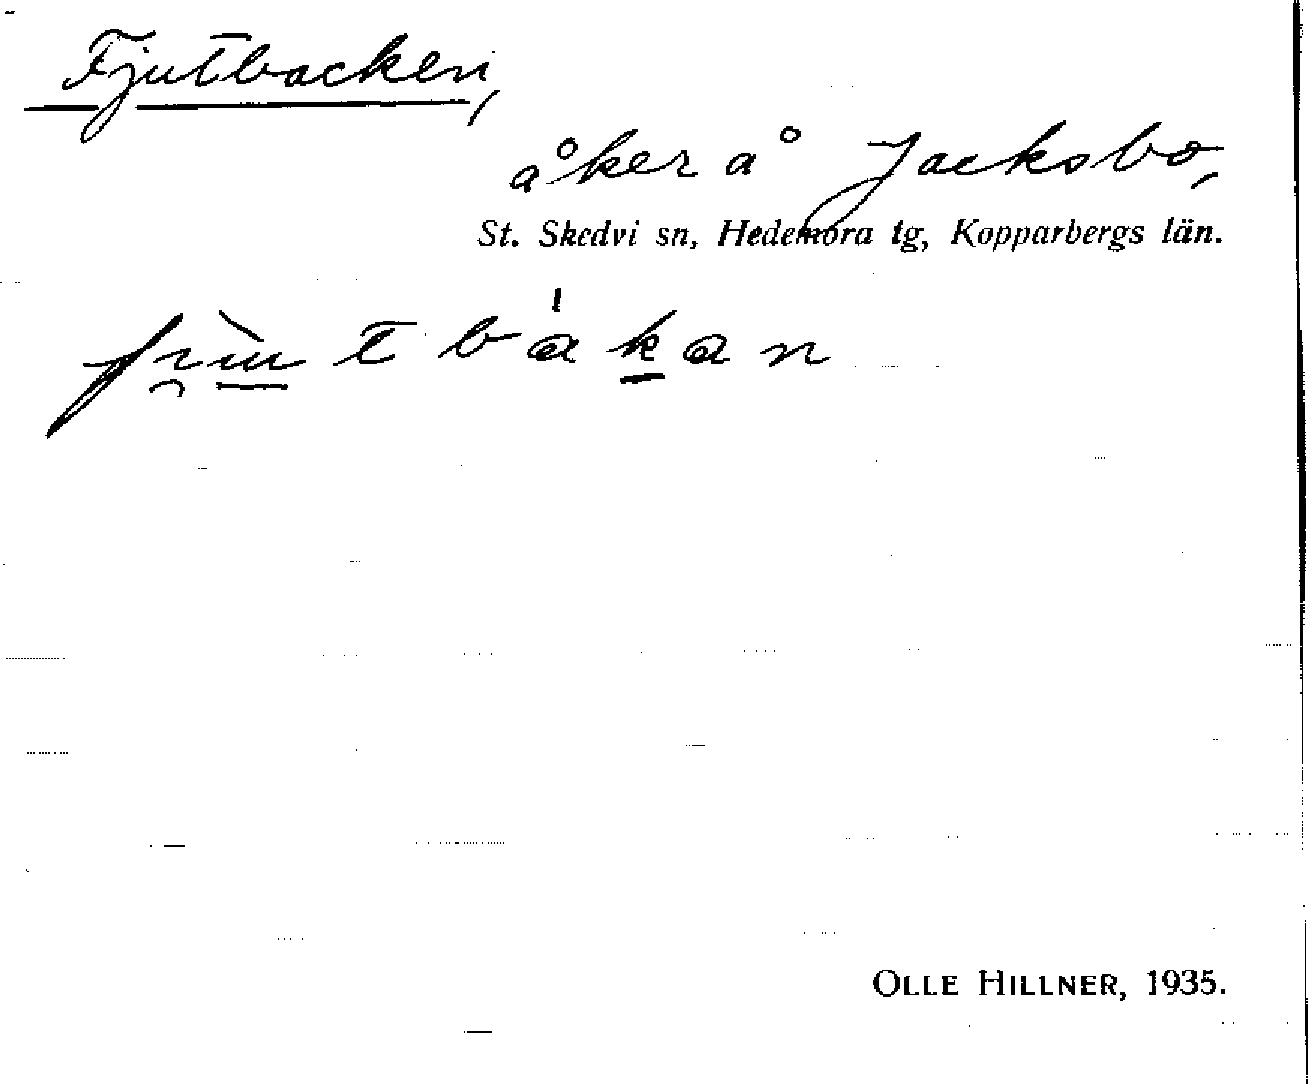 Fjutbacken,
åker å Jacksbo,
St. Skedvi sn, Hedemora tg, Kopparbergs län.
OLLE HILLNER, 1935.